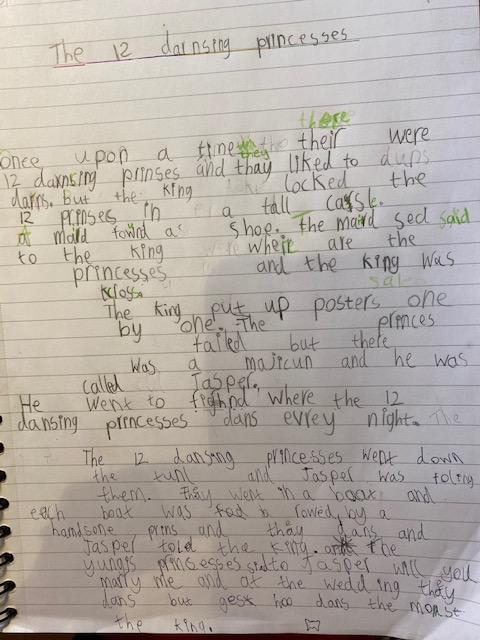 The 12 darnsing princesses
there
Once upon a time their were
12 darnsing prinses and thay they liked to
darns. but the king locked the
12 prinses in a tall casle.
a maid fownd a shoe. the maid sed said
to the king where are the
princesses and the king was
kross.
The king put up posters one
by one. The princes
failed but there
was a majicun and he was
called Jasper.
He went to fighnd where the 12
dansing princesses dans evrey night. The
The 12 dansing princesses went down
the tunl and Jasper was foling
them. Thay went in a boat and
each boat was rowed by a
handsone prins and thay dans and
Jasper told the king. The
yungis princesses sed to Jasper will you
marry me and at the wedding thay
dans but gest hoo dans the monst
the king.